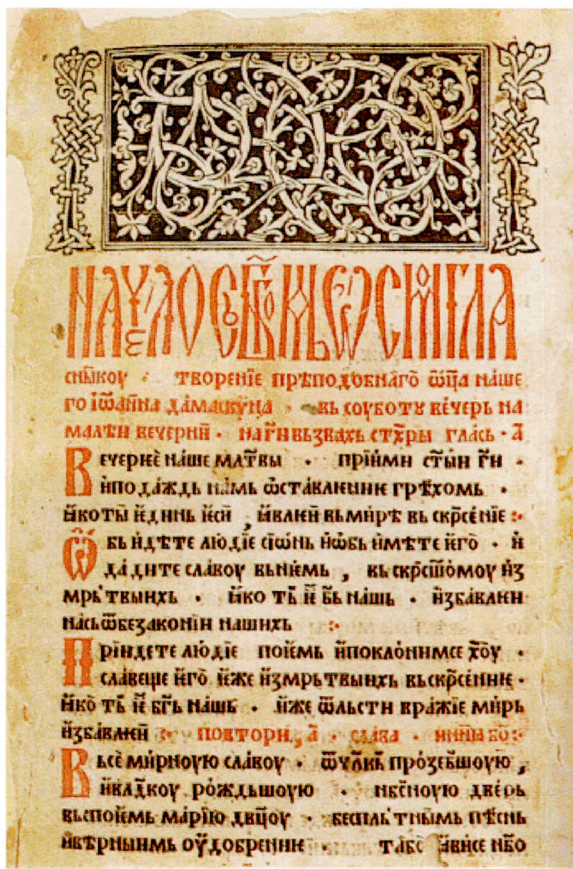 НАЧЕЛО СЬ БГОМЬ ѠСМОГЛА
сникоу · творенїе прѣподобнаго ѿца наше
го їѡанна дамаскуна · вь соуботу вечерь на
малѣи вечерни · на гї вьзвахь стхры глась · а
Вечерне наше млтвы · прїими сты ги ·
и подаждь намь ѡставлиние грѣхомь ·
ꙗко ты ѥдинь ѥси , ꙗвлеи вь мирѣ вьскрсенїе :·
Ѡбьидѣте людїе сїѡнь и ѡбьимѣте ѥго · и
дадите славоу вь нѥмь , вьскрсшомоу из
мрьтвыихь · ꙗко ть ѥ бь нашь · избавлеи
нась ѿ безаконїи нашихь :·
Прїидете людїе поѥмь и поклонимсе хоу ·
славеще ѥго ѥже из мрьтвыихь вьскрсение ·
ꙗко ть ѥ бгь нашь · иже ѿ льсти вражїе мирь
избавлеи :· повтори , а · слава · инꙗ бо :·
Вьсемирноую славоу · ѿ члкь прозебшоую ,
и влдкоу рождьшоую · нбсноую дверь
вьспоѥмь марїю двцоу · беспльтнымь пѣснь
и вѣрнымь оудобрение · та бо ꙗви се нбо